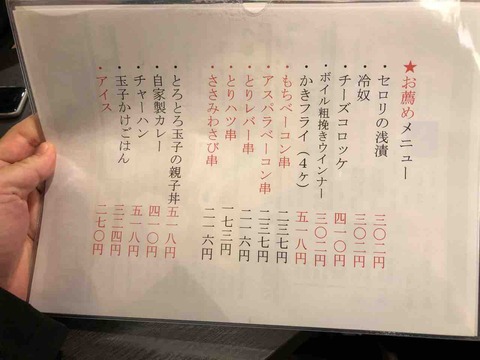 ★お薦めメニュー
・セロリの浅漬 三〇二円
・冷奴 三〇二円
・チーズコロッケ 四一〇円
・ボイル粗挽きウインナー 三〇二円
・かきフライ(4ヶ) 五一八円
・もちベーコン串 二三七円
・アスパラベーコン串 二三七円
・とりレバー串 二一六円
・とりハツ串 一七三円
・ささみわさび串 二一六円
・とろとろ玉子の親子丼 五一八円
・自家製カレー 四一〇円
・チャーハン 五一八円
・玉子かけごはん 三二四円
・アイス 二七〇円